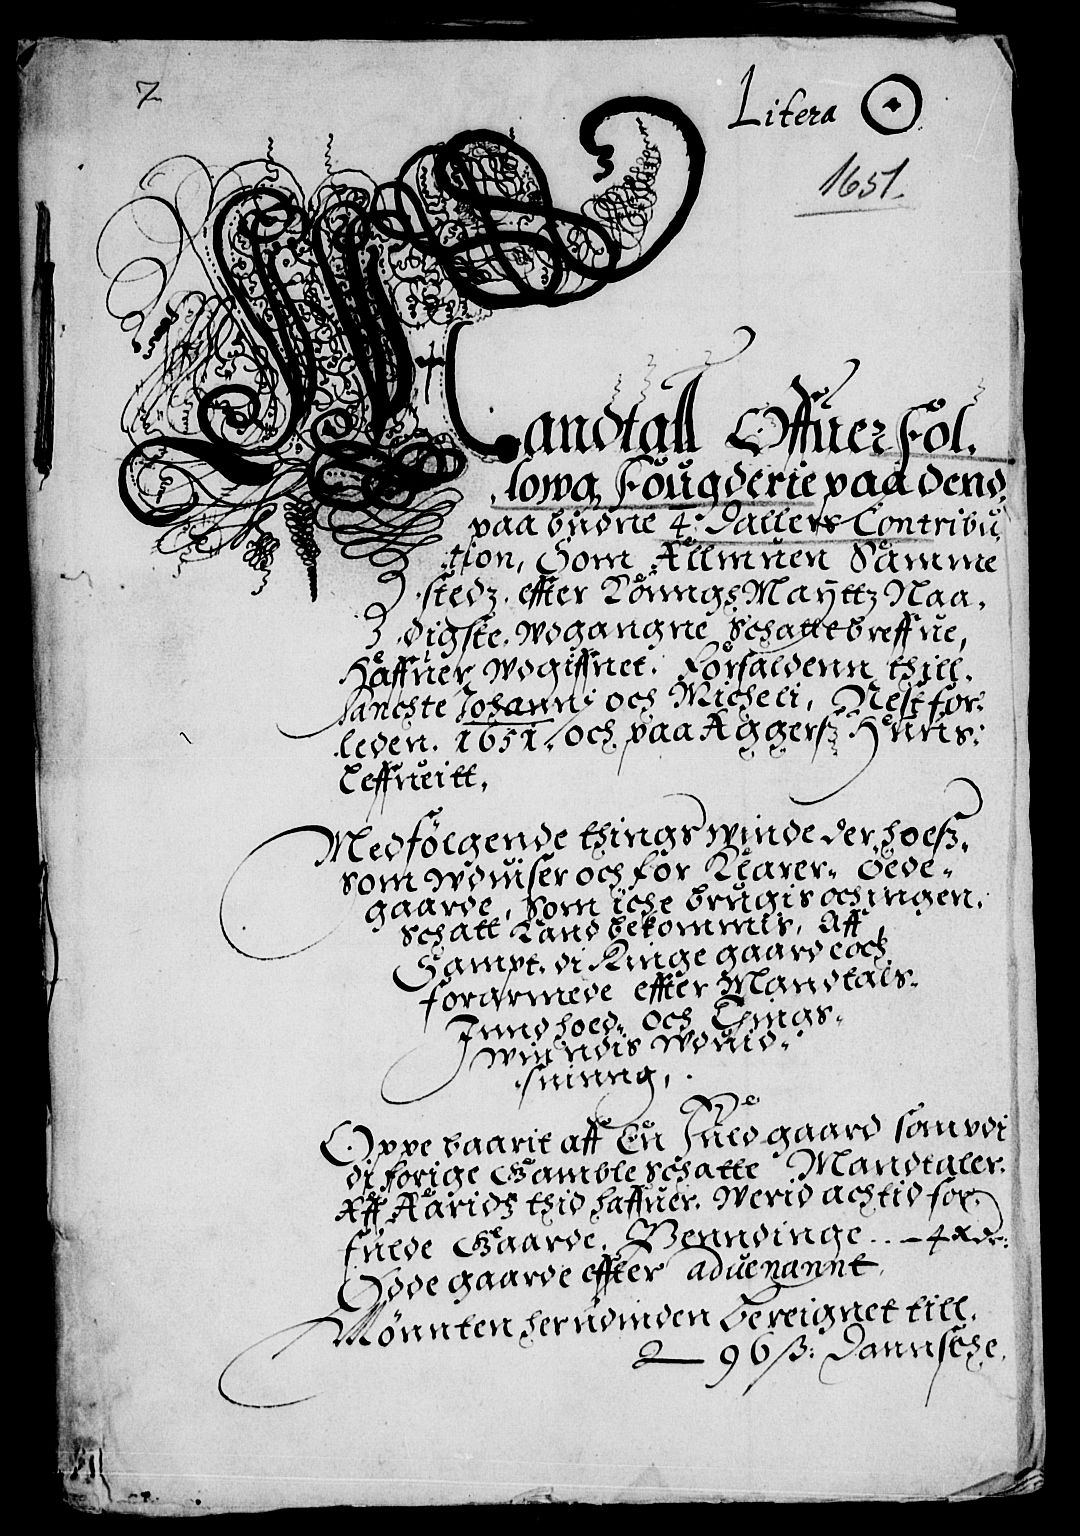 7
Litera
1651.
Mandtall Offuer Fol„
lowg Fougderie paa dend
paabudne 4: Dallers Contribu„
tion, Som Allmuen Samme„
stedz. effter Konngs Mayttz Naa„
digste. wdgangne Schattebreffue,
Haffuer wdgiffuet. Forfaldenn thill.
Sanchte Johanni och Micheli, Nest for„
leden. 1651. och paa Aggersz Huus:
Leffueritt,
Medfölgende thingswinde der hoesz.
som wduiser och for Klarer„ Öede„
gaarde, Som iche brugis och ingen.
Schatt kand bekommis, Aff
Sampt. di Ringe gaarde och
forarmede effter Mandtals„
Inndhoed„ och Things„
winndis wduid„
sninng,
Oppebaarit aff En Fuldgaard som vdi
di forige Gamble Schatte Mandtaler.
Aff Aaridz thid haffuer. Werid achtid for„
fulde Gaarde, Penndinge .. — 4 Rdr:
Ödegaarde effter aduenannt,
Mönnten herudinden bereignet till.
96 ß: Dannsche,